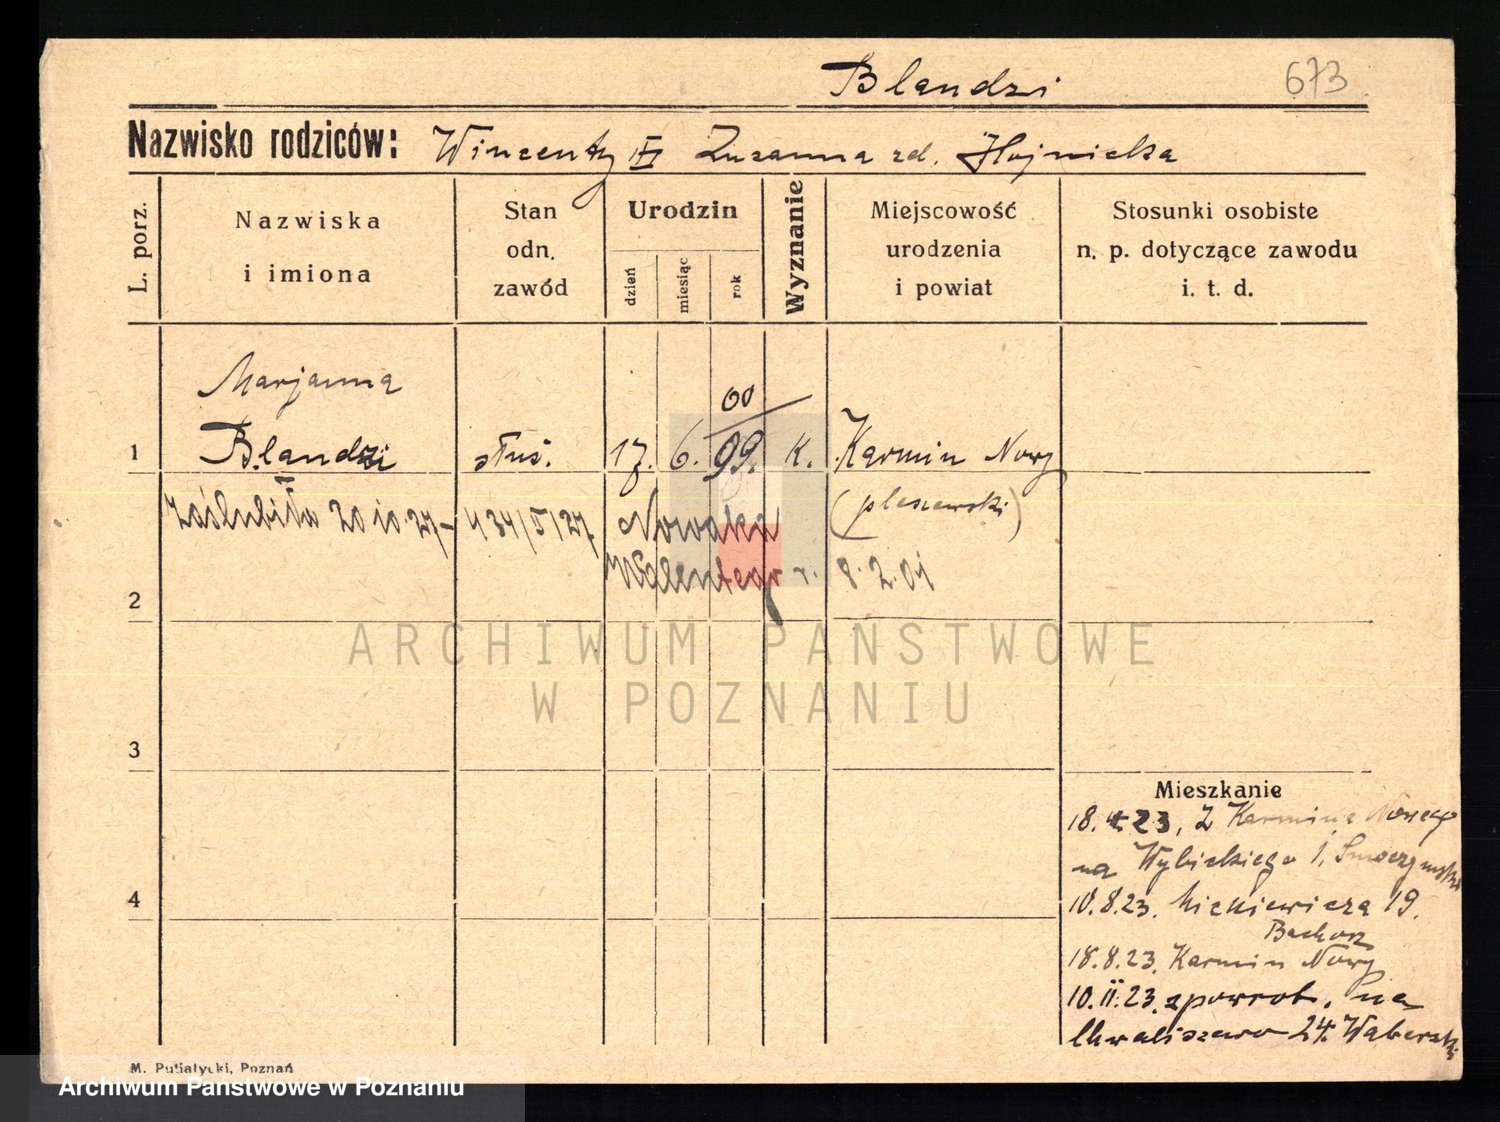 Blandzi 673
Nazwisko rodziców: Wincenty i Zuzanna zd. Hojnicka
L. porz.
Nazwiska
i imiona
Stan
odn.
zawód
Urodzin
dzień
miesiąc
rok
Wyznanie
Miejscowość
urodzenia
i powiat
Stosunki osobiste
n. p. dotyczące zawodu
i. t. d.
Marjanna
00
1 Blandzi służ. 17. 6. 99. K. Karmin Nowy
(pleszewski)
zaślubiła 20 10. 27 - 434/5/27 Nowaka
Walentego r. 8.2.01
2
ARCHIWUM PAŃSTWOWE
W POZNANIU
3
Mieszkanie
18. 4 23, z Karmina Nowego
na Wybickiego 1,
4
10.8.23. Mickiewicza 19.
18.8.23. Karmin Nowy
10.11.23. zpowrot. na
Chwaliszewo 24.
M. Putiatycki, Poznań
Archiwum Państwowe w Poznaniu